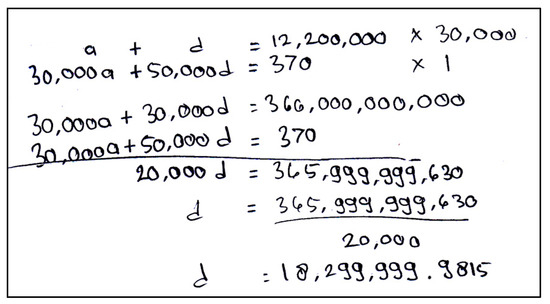 a + d = 12,200,000 × 30,000
30,000a + 50,000d = 370 × 1
30,000a + 30,000d = 366,000,000,000
30,000a + 50,000d = 370
20,000 d = 365,999,999,630
d = 365,999,999,630
20,000
d = 18,299,999.9815